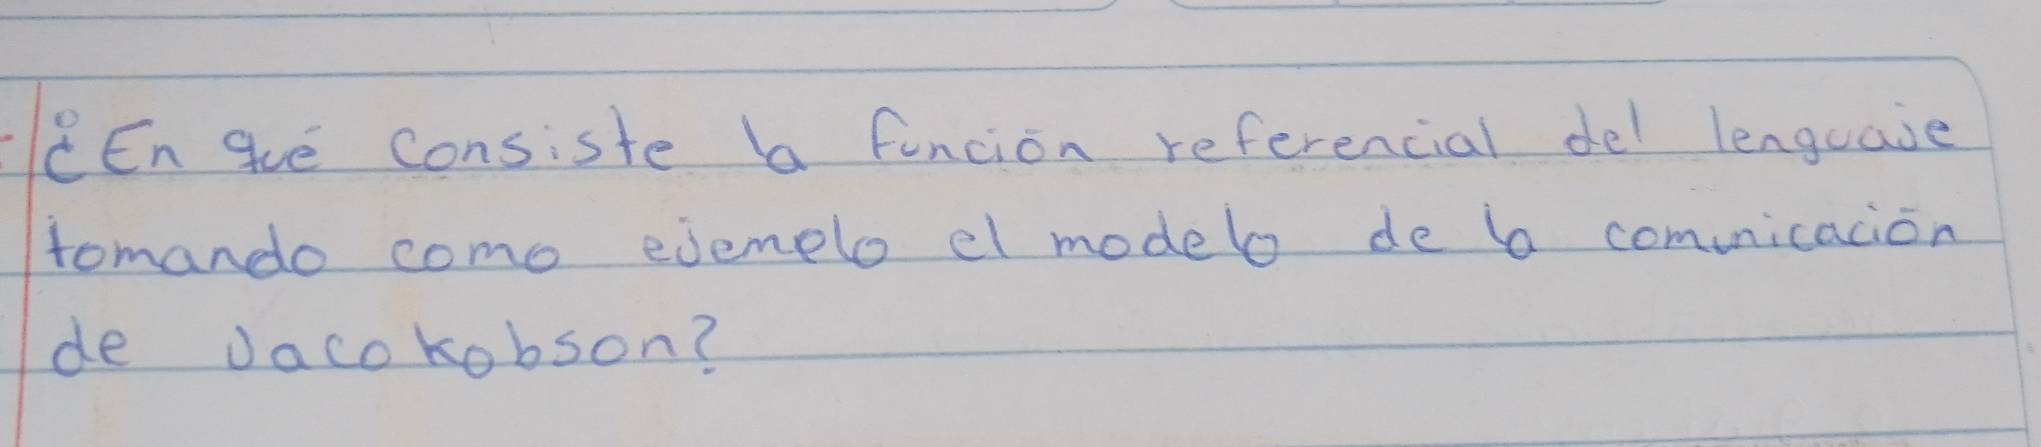 ¿En qué consiste la función referencial del lenguaje
tomando como ejemplo el modelo de la comunicación
de Jacokobson?